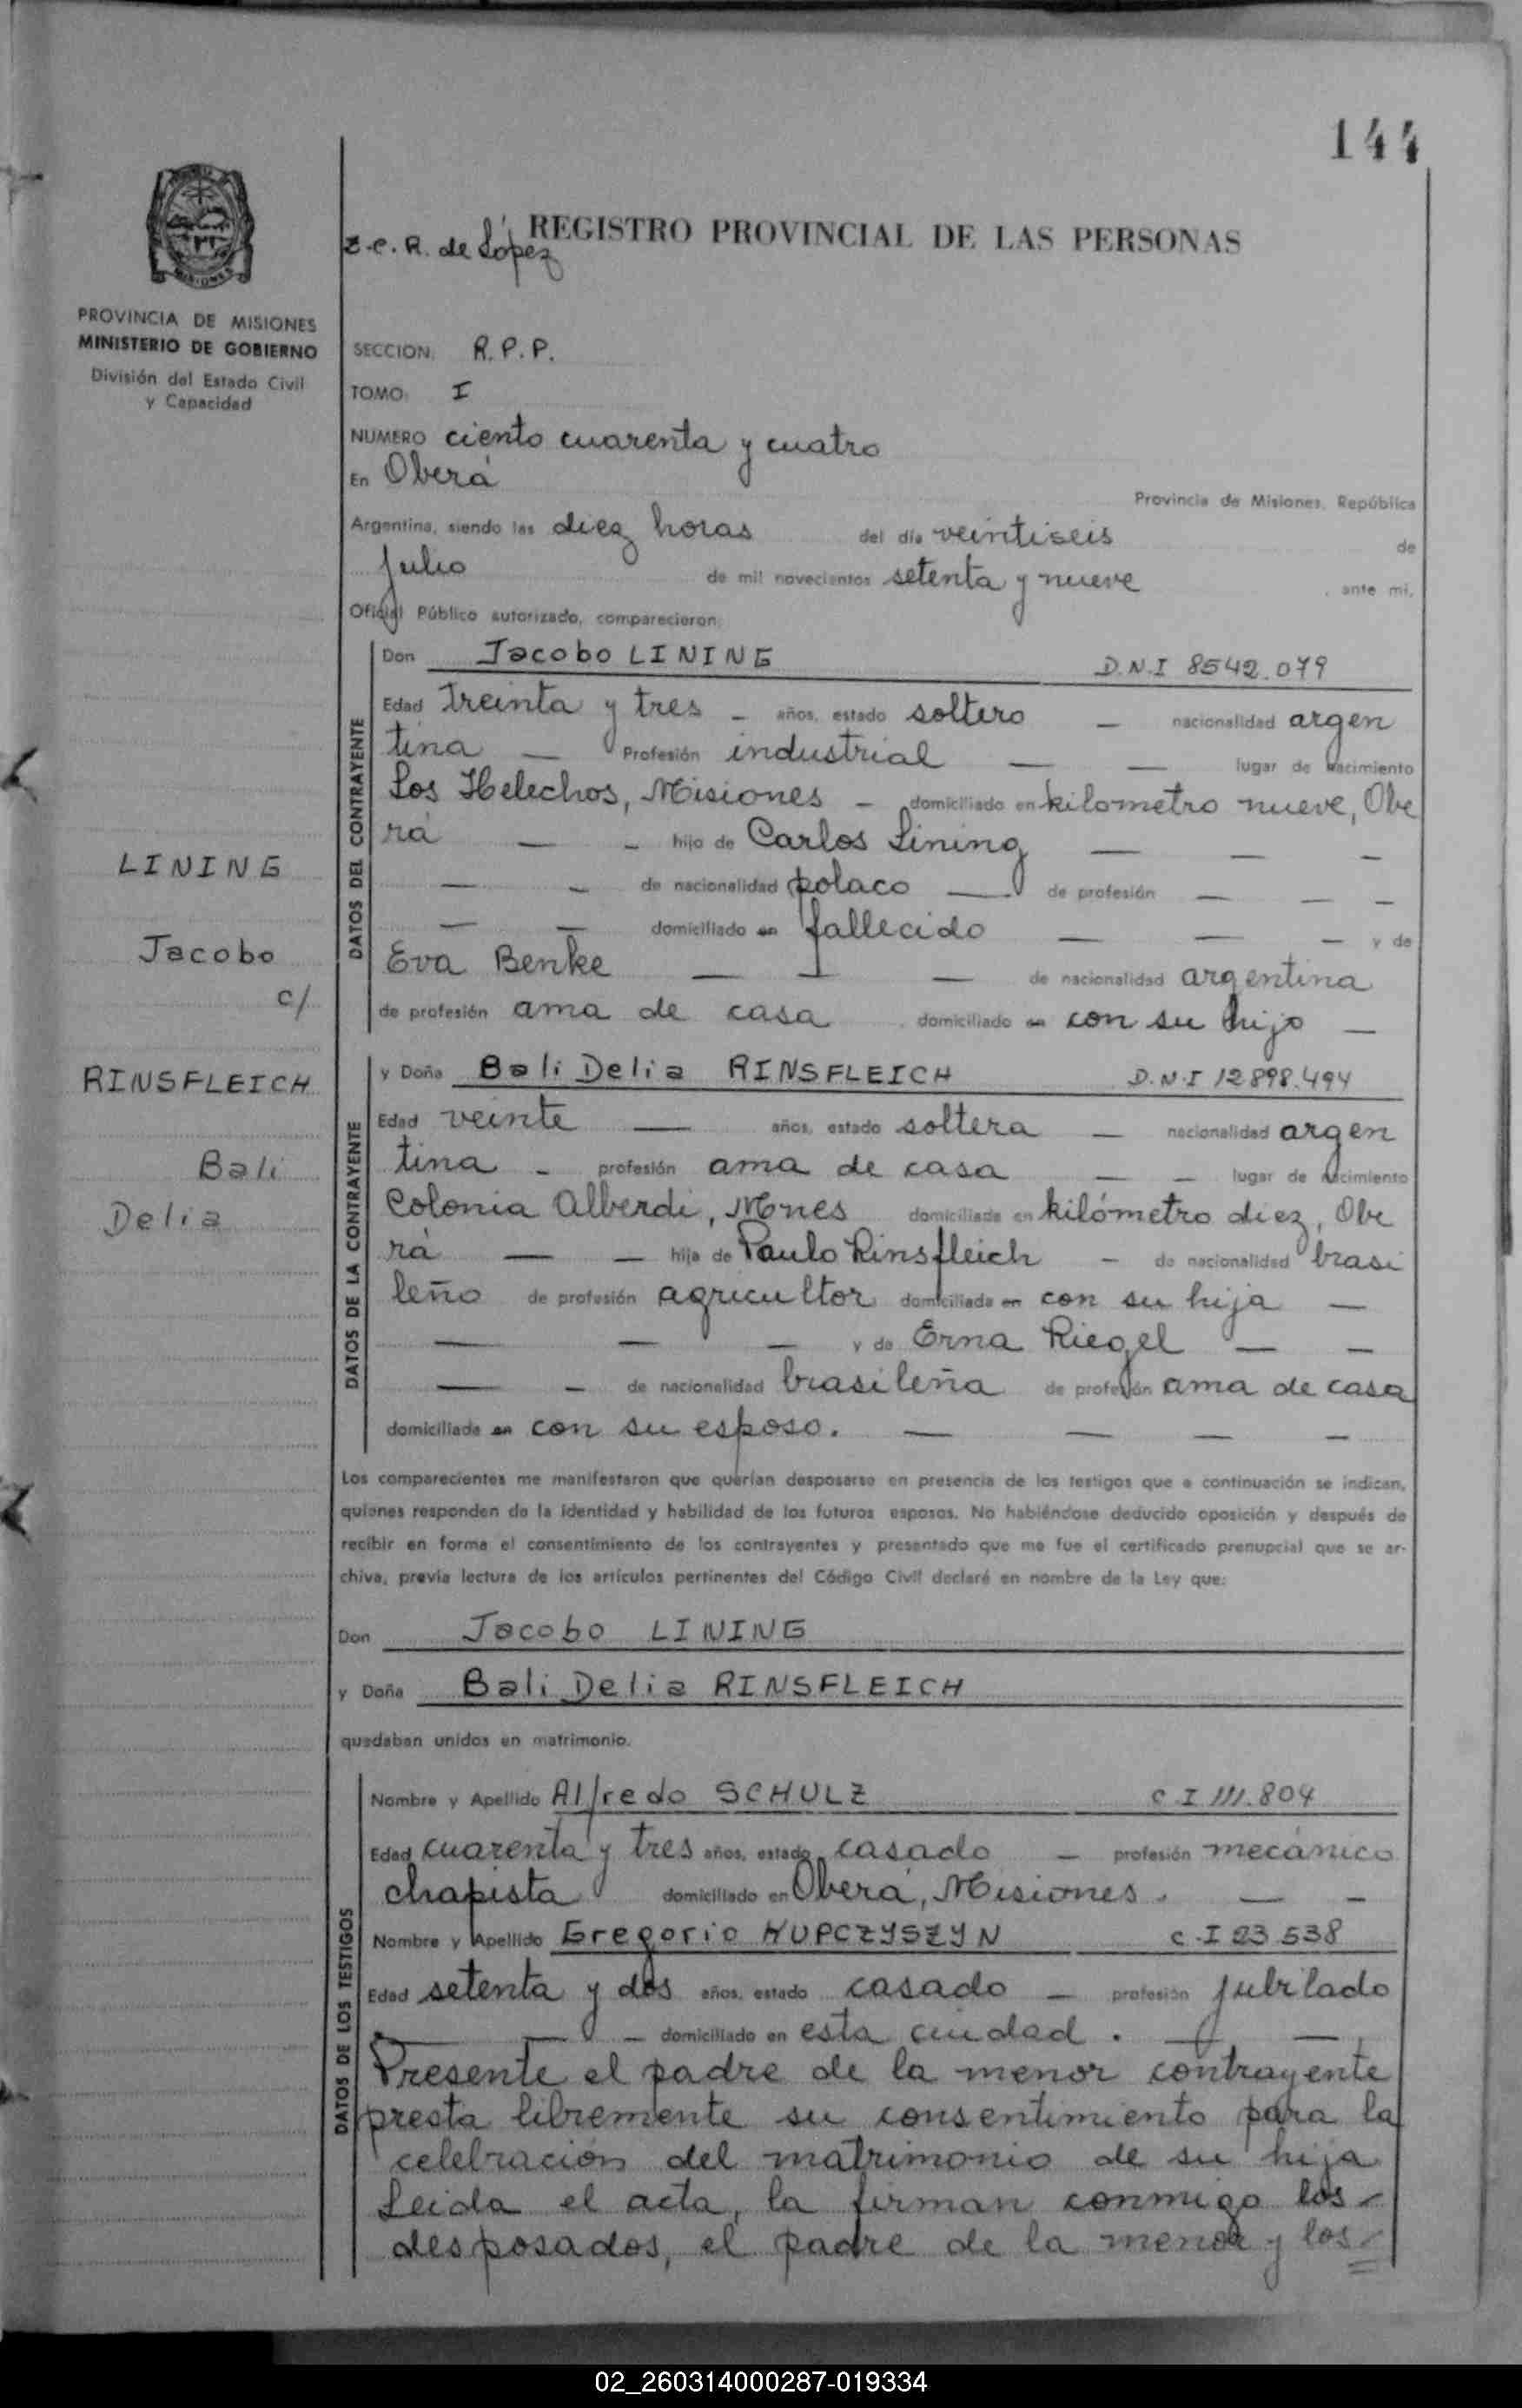 144
REGISTRO PROVINCIAL DE LAS PERSONAS
Z.C.R. de López
PROVINCIA DE MISIONES
MINISTERIO DE GOBIERNO
División del Estado Civil
y Capacidad
LINING
Jacobo
c/
RINSFLEICH
Bali
Delia
SECCION: R.P.P.
TOMO: I
NUMERO ciento cuarenta y cuatro
En Oberá
Provincia de Misiones, República
Argentina, siendo las diez horas del día veintiseis de
Julio de mil novecientos setenta y nueve , ante mí,
Oficial Público autorizado, comparecieron:
DATOS DEL CONTRAYENTE
Don Jacobo LINING D.N.I 8542.079
Edad treinta y tres - años, estado soltero - nacionalidad argen
tina - Profesión industrial - - lugar de nacimiento
Los Helechos, Misiones - domiciliado en kilometro nueve, Obe
rá - - hijo de Carlos Lining - - -
- - de nacionalidad polaco - de profesión - - -
- - domiciliado en fallecido - - - y de
Eva Benke - - - de nacionalidad argentina
de profesión ama de casa domiciliado en con su hijo -
DATOS DE LA CONTRAYENTE
y Doña Bali Delia RINSFLEICH D.N.I 12898.494
Edad veinte - años, estado soltera - nacionalidad argen
tina - profesión ama de casa - - lugar de nacimiento
Colonia Alberdi, Mnes domiciliada en kilómetro diez, Obe
rá - - hija de Paulo Rinsfleich - de nacionalidad brasi
leño de profesión agricultor domiciliada en con su hija -
- - - y de Erna Riegel - -
- - de nacionalidad brasileña de profesión ama de casa
domiciliada en con su esposo. - - - -
Los comparecientes me manifestaron que querían desposarse en presencia de los testigos que a continuación se indican,
quienes responden de la identidad y habilidad de los futuros esposos. No habiéndose deducido oposición y después de
recibir en forma el consentimiento de los contrayentes y presentado que me fue el certificado prenupcial que se ar-
chiva, previa lectura de los artículos pertinentes del Código Civil declaré en nombre de la Ley que:
Don Jacobo LINING
y Doña Bali Delia RINSFLEICH
quedaban unidos en matrimonio.
DATOS DE LOS TESTIGOS
Nombre y Apellido Alfredo SCHULZ C.I 111.804
Edad cuarenta y tres años, estado casado - profesión mecánico
chapista domiciliado en Oberá, Misiones. - -
Nombre y Apellido Gregorio HUPCZYSZYN C.I 23538
Edad setenta y dos años, estado casado - profesión jubilado
- - - domiciliado en esta ciudad. - -
Presente el padre de la menor contrayente
presta libremente su consentimiento para la
celebración del matrimonio de su hija
Leida el acta, la firman conmigo los
desposados, el padre de la menor y los
02_260314000287-019334